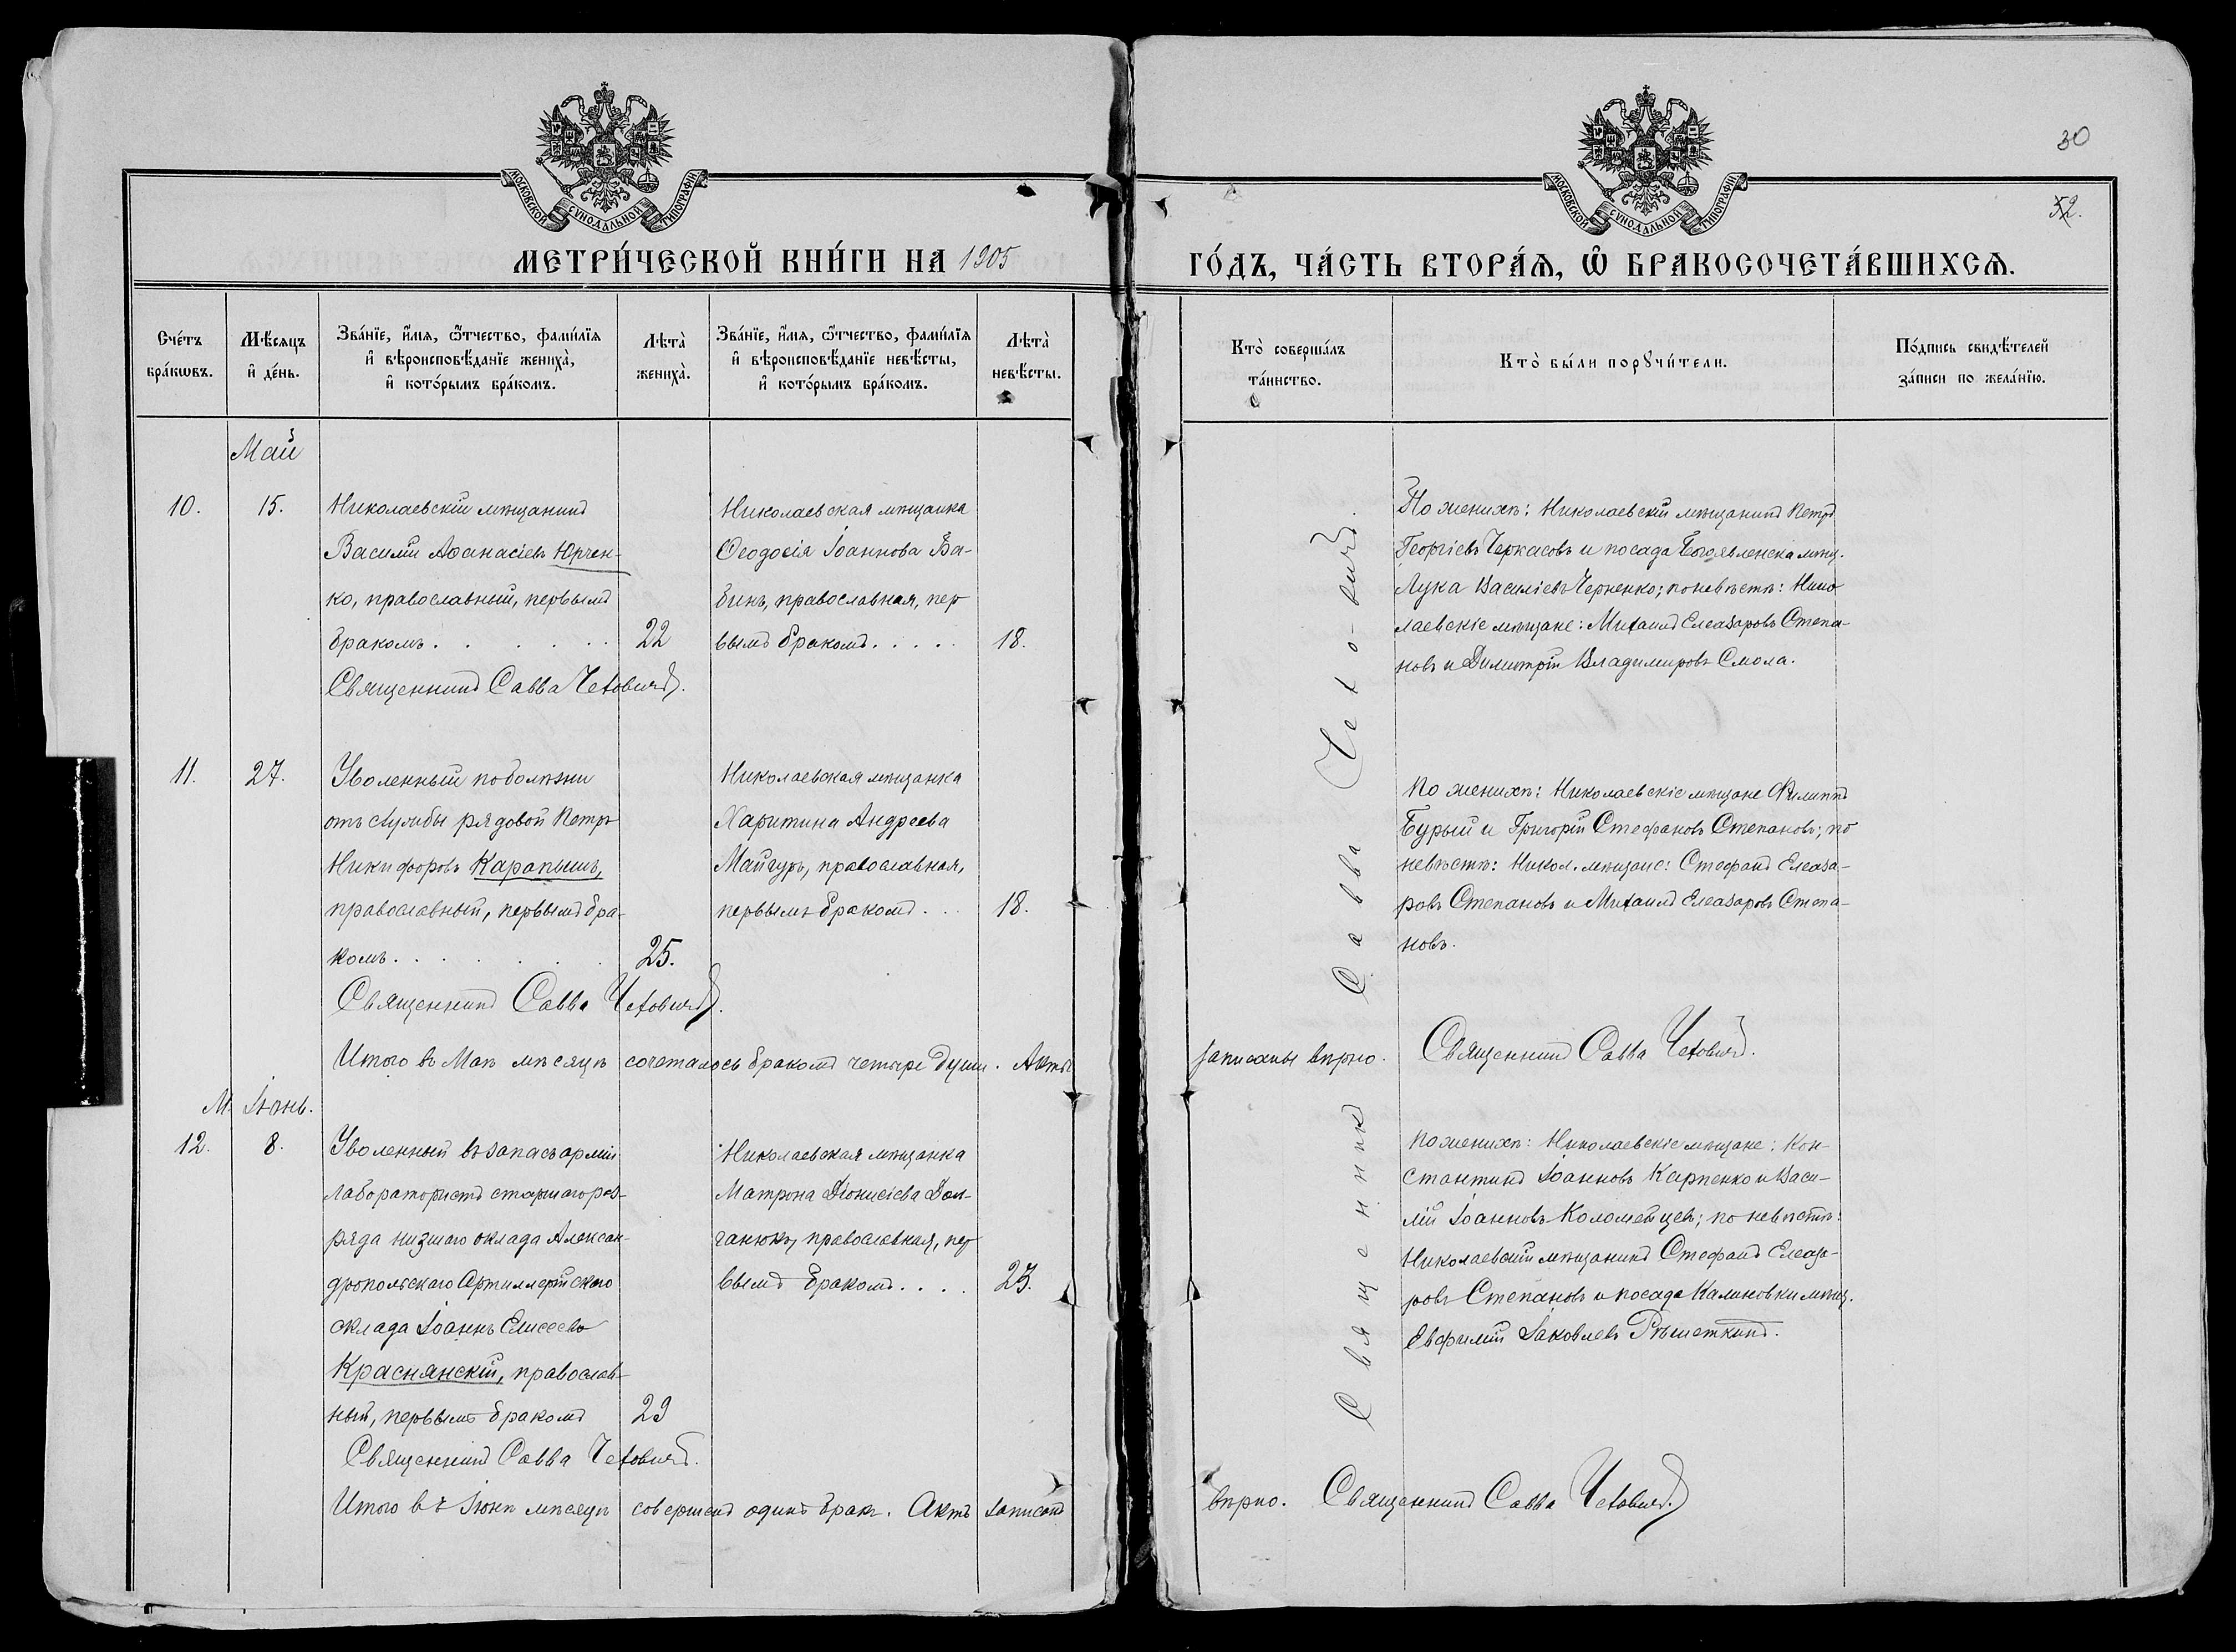 30
52.
МОСКОВСКОЙ СѴНОДАЛЬНОЙ ТИПОГРАФІИ
МОСКОВСКОЙ СѴНОДАЛЬНОЙ ТИПОГРАФІИ
МЕТРИ́ЧЕСКОЙ КНИ́ГИ НА 1905 ГО́ДЪ, ЧА́СТЬ ВТОРА́Ѧ, Ѡ҆ БРАКОСОЧЕТА́ВШИХСѦ.
Сче́тъ бра́кѡвъ.
Мѣ́сяцъ и҆ де́нь.
Зва́нїе, и҆́мя, ѻ҆́тчество, фами́лїя
и҆ вѣроисповѣ́данїе жениха̀,
и҆ кото́рымъ бра́комъ.
Лѣта̀ жениха̀.
Зва́нїе, и҆́мя, ѻ҆́тчество, фами́лїя
и҆ вѣроисповѣ́данїе невѣ́сты,
и҆ кото́рымъ бра́комъ.
Лѣта̀ невѣ́сты.
Кто̀ соверша́лъ
та́инство.
Кто̀ бы́ли порꙋчи́тели.
По́дпись свидѣ́телей
за́писи по жела́нїю.
Май
10.
15.
Николаевскій мѣщанинъ
Василій Аѳанасіевъ Юрчен-
ко, православный, первымъ
бракомъ . . . . . .
22
Священникъ Савва Чеховичъ.
Николаевская мѣщанка
Ѳеодосія Іоаннова Ба-
бинъ, православная, пер-
вымъ бракомъ . . . . .
18.
По женихѣ: Николаевскій мѣщанинъ Петръ
Георгіевъ Черкасовъ и посада Богоявленска мѣщ.
Лука Василіевъ Черненко; по невѣстѣ: Нико-
лаевскіе мѣщане: Михаилъ Елеазаровъ Степа-
новъ и Димитрій Владимировъ Смола.
11.
27.
Уволенный по болѣзни
отъ службы рядовой Петръ
Никифоровъ Карапышъ,
православный, первымъ бра-
комъ . . . . . .
25.
Священникъ Савва Чеховичъ.
Николаевская мѣщанка
Харитина Андреева
Майгуръ, православная,
первымъ бракомъ . . .
18.
По женихѣ: Николаевскіе мѣщане Филиппъ
Бурый и Григорій Стефановъ Степановъ; по
невѣстѣ: Никол. мѣщане: Стефанъ Елеаза-
ровъ Степановъ и Михаилъ Елеазаровъ Степа-
новъ.
Итого въ Маѣ мѣсяцѣ сочеталось бракомъ четыре души. Акты записаны вѣрно. Священникъ Савва Чеховичъ.
М. Іюнь.
12.
8.
Уволенный въ запасъ арміи
лаборатористъ старшаго раз-
ряда низшаго оклада Алексан-
дропольскаго Артиллерійскаго
склада Іоаннъ Елисеевъ
Краснянскій, православ-
ный, первымъ бракомъ
29
Священникъ Савва Чеховичъ.
Николаевская мѣщанка
Матрона Діонисіева Дол-
ганюкъ, православная, пер-
вымъ бракомъ . . . .
23.
По женихѣ: Николаевскіе мѣщане: Кон-
стантинъ Іоанновъ Карпенко и Васи-
лій Іоанновъ Коломейцевъ; по невѣстѣ:
Николаевскій мѣщанинъ Стефанъ Елеаза-
ровъ Степановъ и посада Калиновки мѣщ.
Евфимій Іаковлевъ Рѣшеткинъ.
Священникъ Савва Чехо-вичъ.
Итого въ Іюнѣ мѣсяцѣ совершенъ одинъ бракъ. Актъ записанъ вѣрно. Священникъ Савва Чеховичъ.